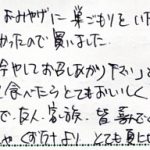 おみやげに 巣ごもりを いた
かったので買いました.
冷やしてお召しあがり下さい」と
食べたら とてもおいしく
で 友人. 家族. 皆 喜んで
より とても 夏